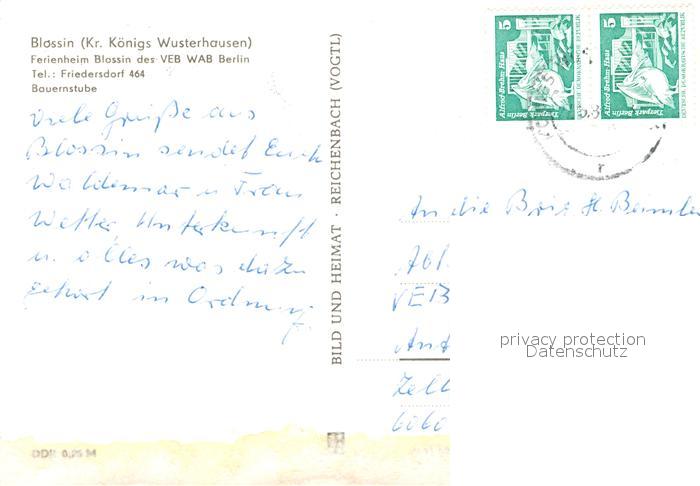 Blossin (Kr. Königs Wusterhausen)
Ferienheim Blossin des VEB WAB Berlin
Tel.: Friedersdorf 464
Bauernstube
viele Grüße aus
Blossin sendet Euch
Waldemar u Frau
Wetter, Unterkunft
u. alles was dazu
gehört in Ordnung
BILD UND HEIMAT · REICHENBACH (VOGTL)
DDR 0,25 M
5
Alfred-Brehm-Haus
Tierpark Berlin
DEUTSCHE DEMOKRATISCHE REPUBLIK
5
Alfred-Brehm-Haus
Tierpark Berlin
DEUTSCHE DEMOKRATISCHE REPUBLIK
An die Brig. H. Beimler
Abt.
VEB
Zell
6060
privacy protection
Datenschutz